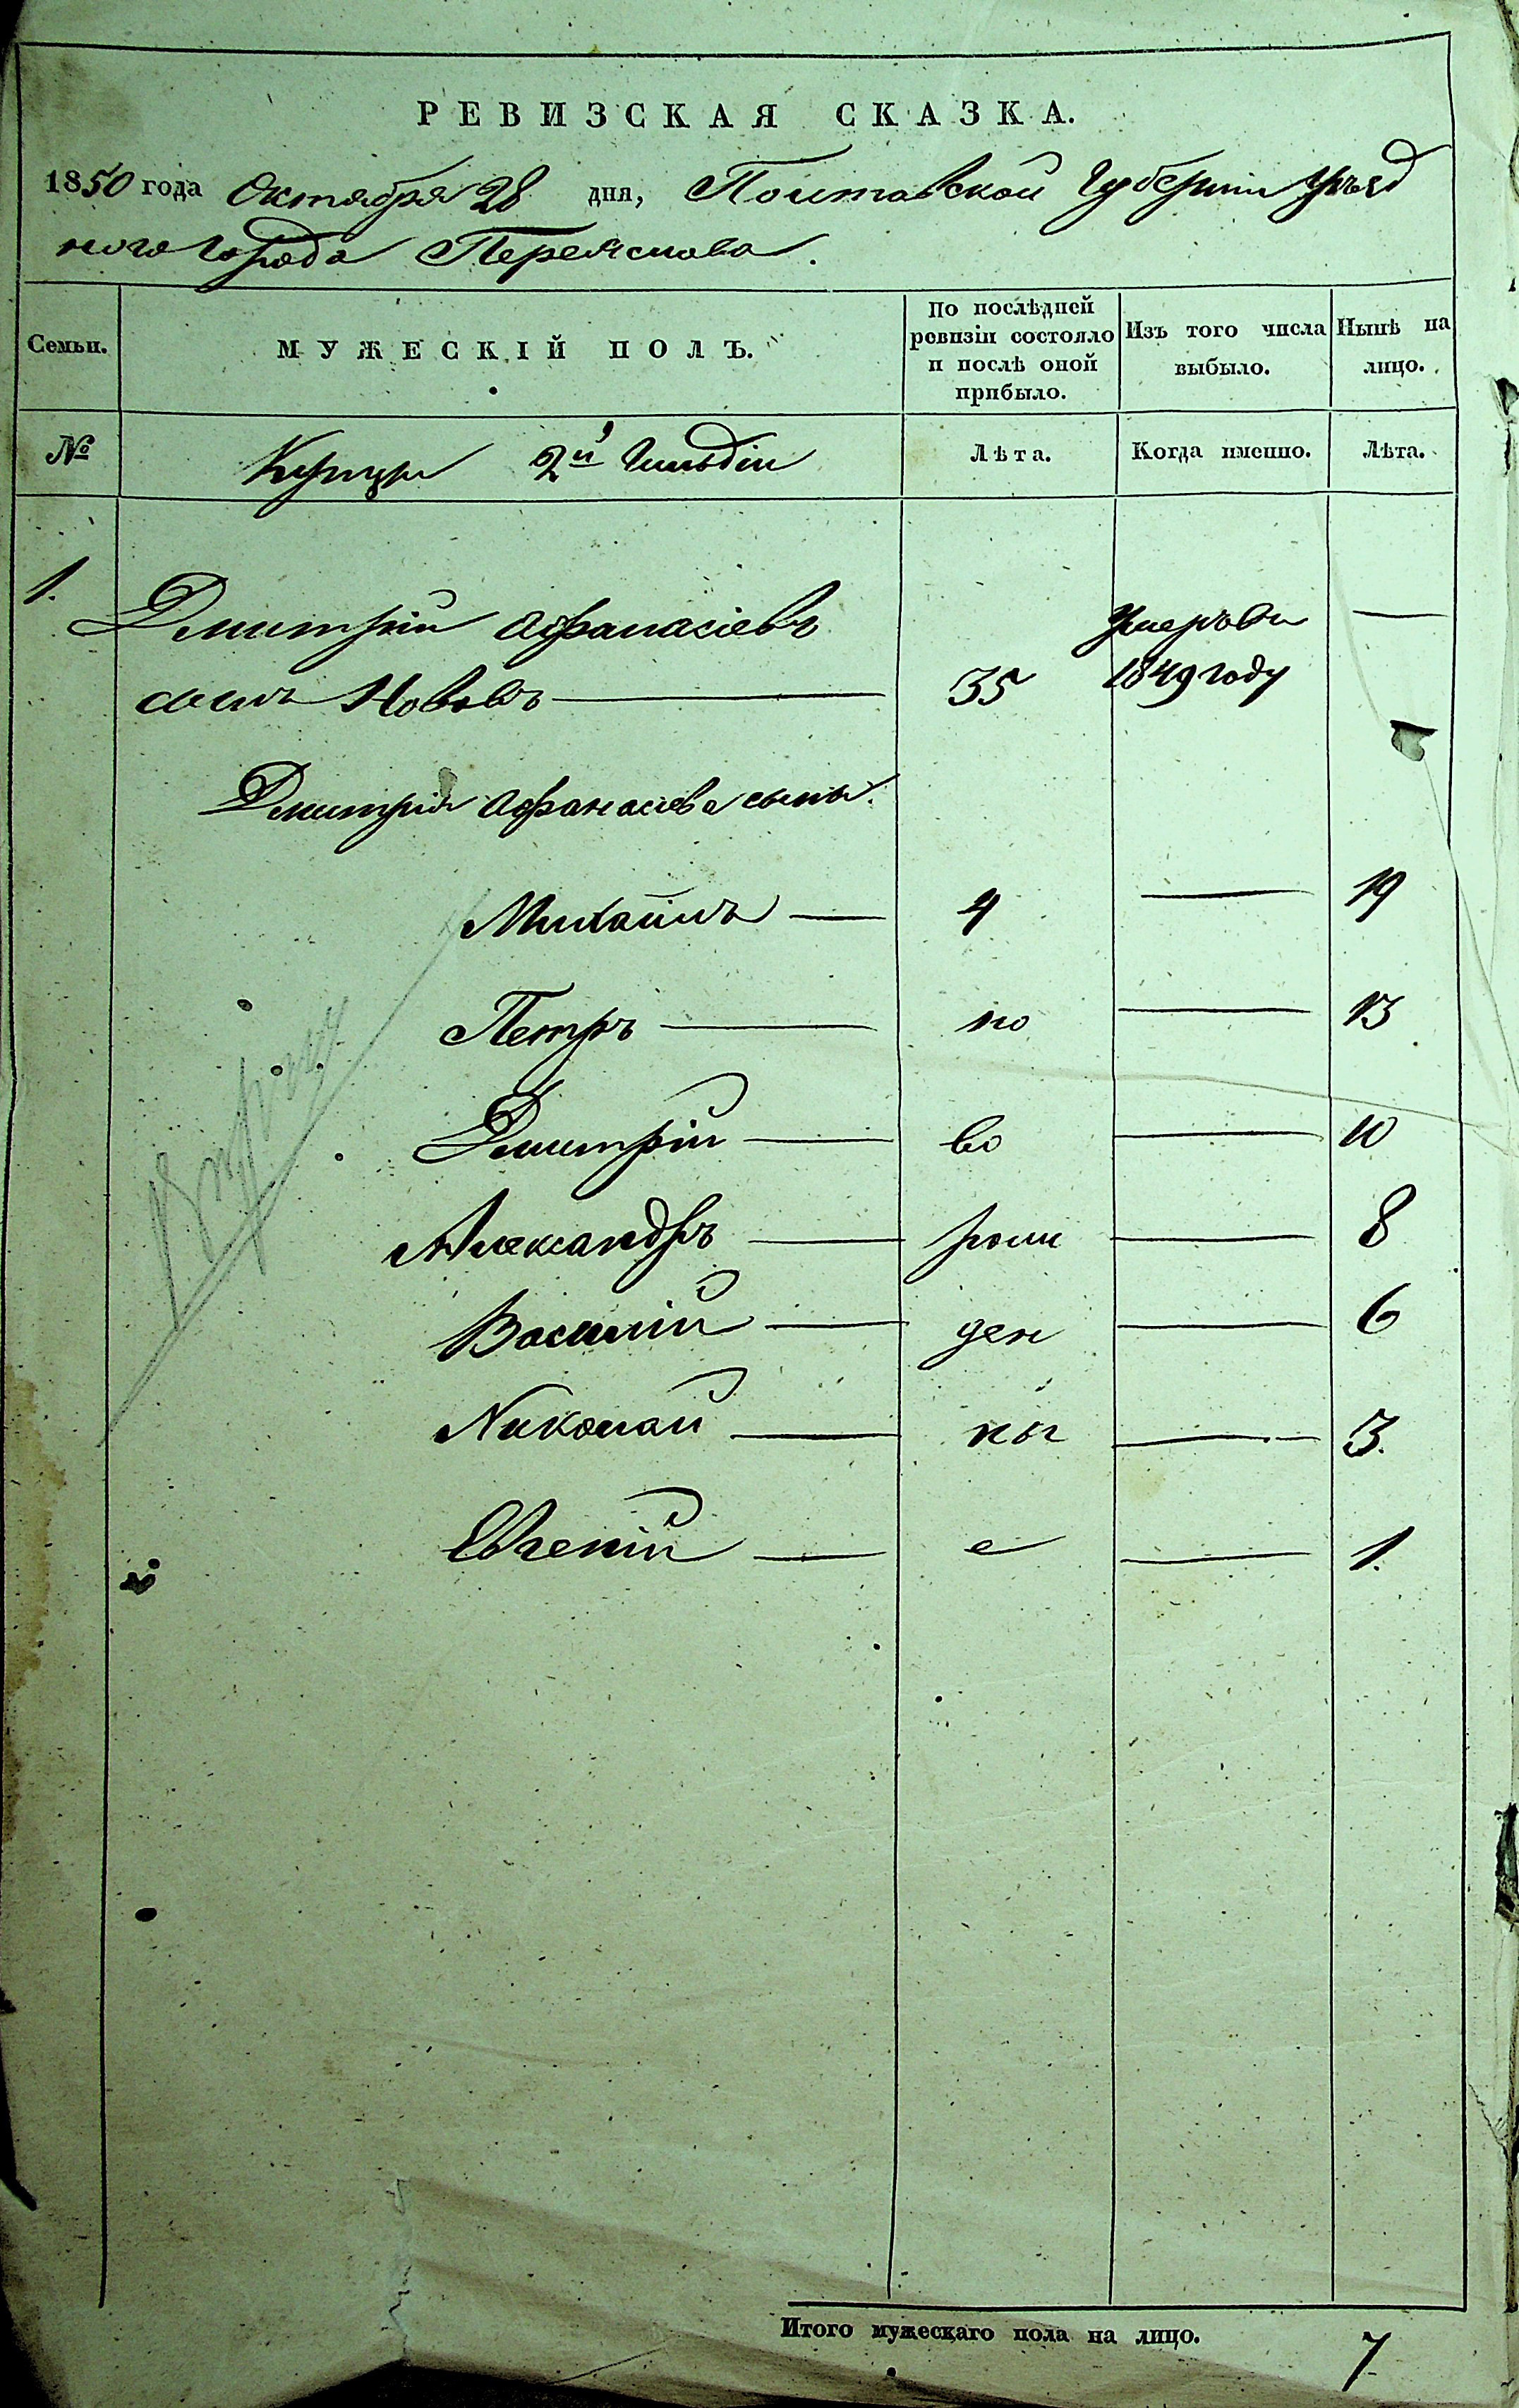 РЕВИЗСКАЯ СКАЗКА.
1850 года Октября 28 дня, Полтавской Губерніи Уѣзд
ного Города Переяслова.
Семьи. МУЖЕСКІЙ ПОЛЪ. По послѣдней ревизіи состояло и послѣ оной прибыло. Изъ того числа выбыло. Нынѣ на лицо.
№ Купцы 2й Гильдіи Лѣта. Когда именно. Лѣта.
1. Дмитрій Афанасіевъ Умеръ въ —
сынъ Нововъ — 35 1849 году
Дмитрія Афанасіева сыны.
Михаилъ — 4 — 19
Петръ — но — 13
Дмитрій — во — 10
Александръ — рош — 8
Василій — ден — 6
Николай — ны — 3.
Евгеній — е — 1.
Итого мужескаго пола на лицо. 7